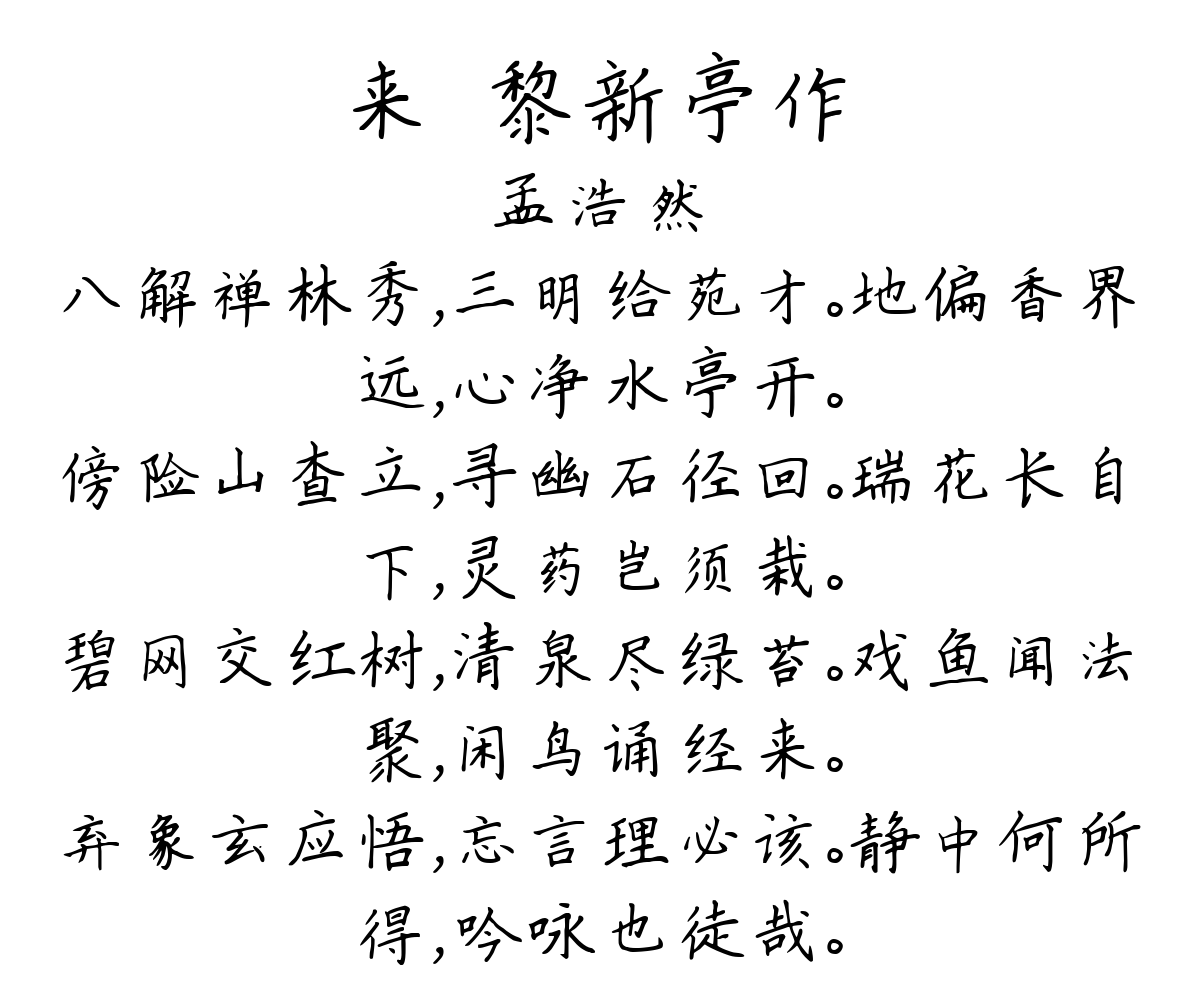 来 黎新亭作
孟浩然
八解禅林秀,三明给苑才。地偏香界
远,心净水亭开。
傍险山查立,寻幽石径回。瑞花长自
下,灵药岂须栽。
碧网交红树,清泉尽绿苔。戏鱼闻法
聚,闲鸟诵经来。
弃象玄应悟,忘言理必该。静中何所
得,吟咏也徒哉。